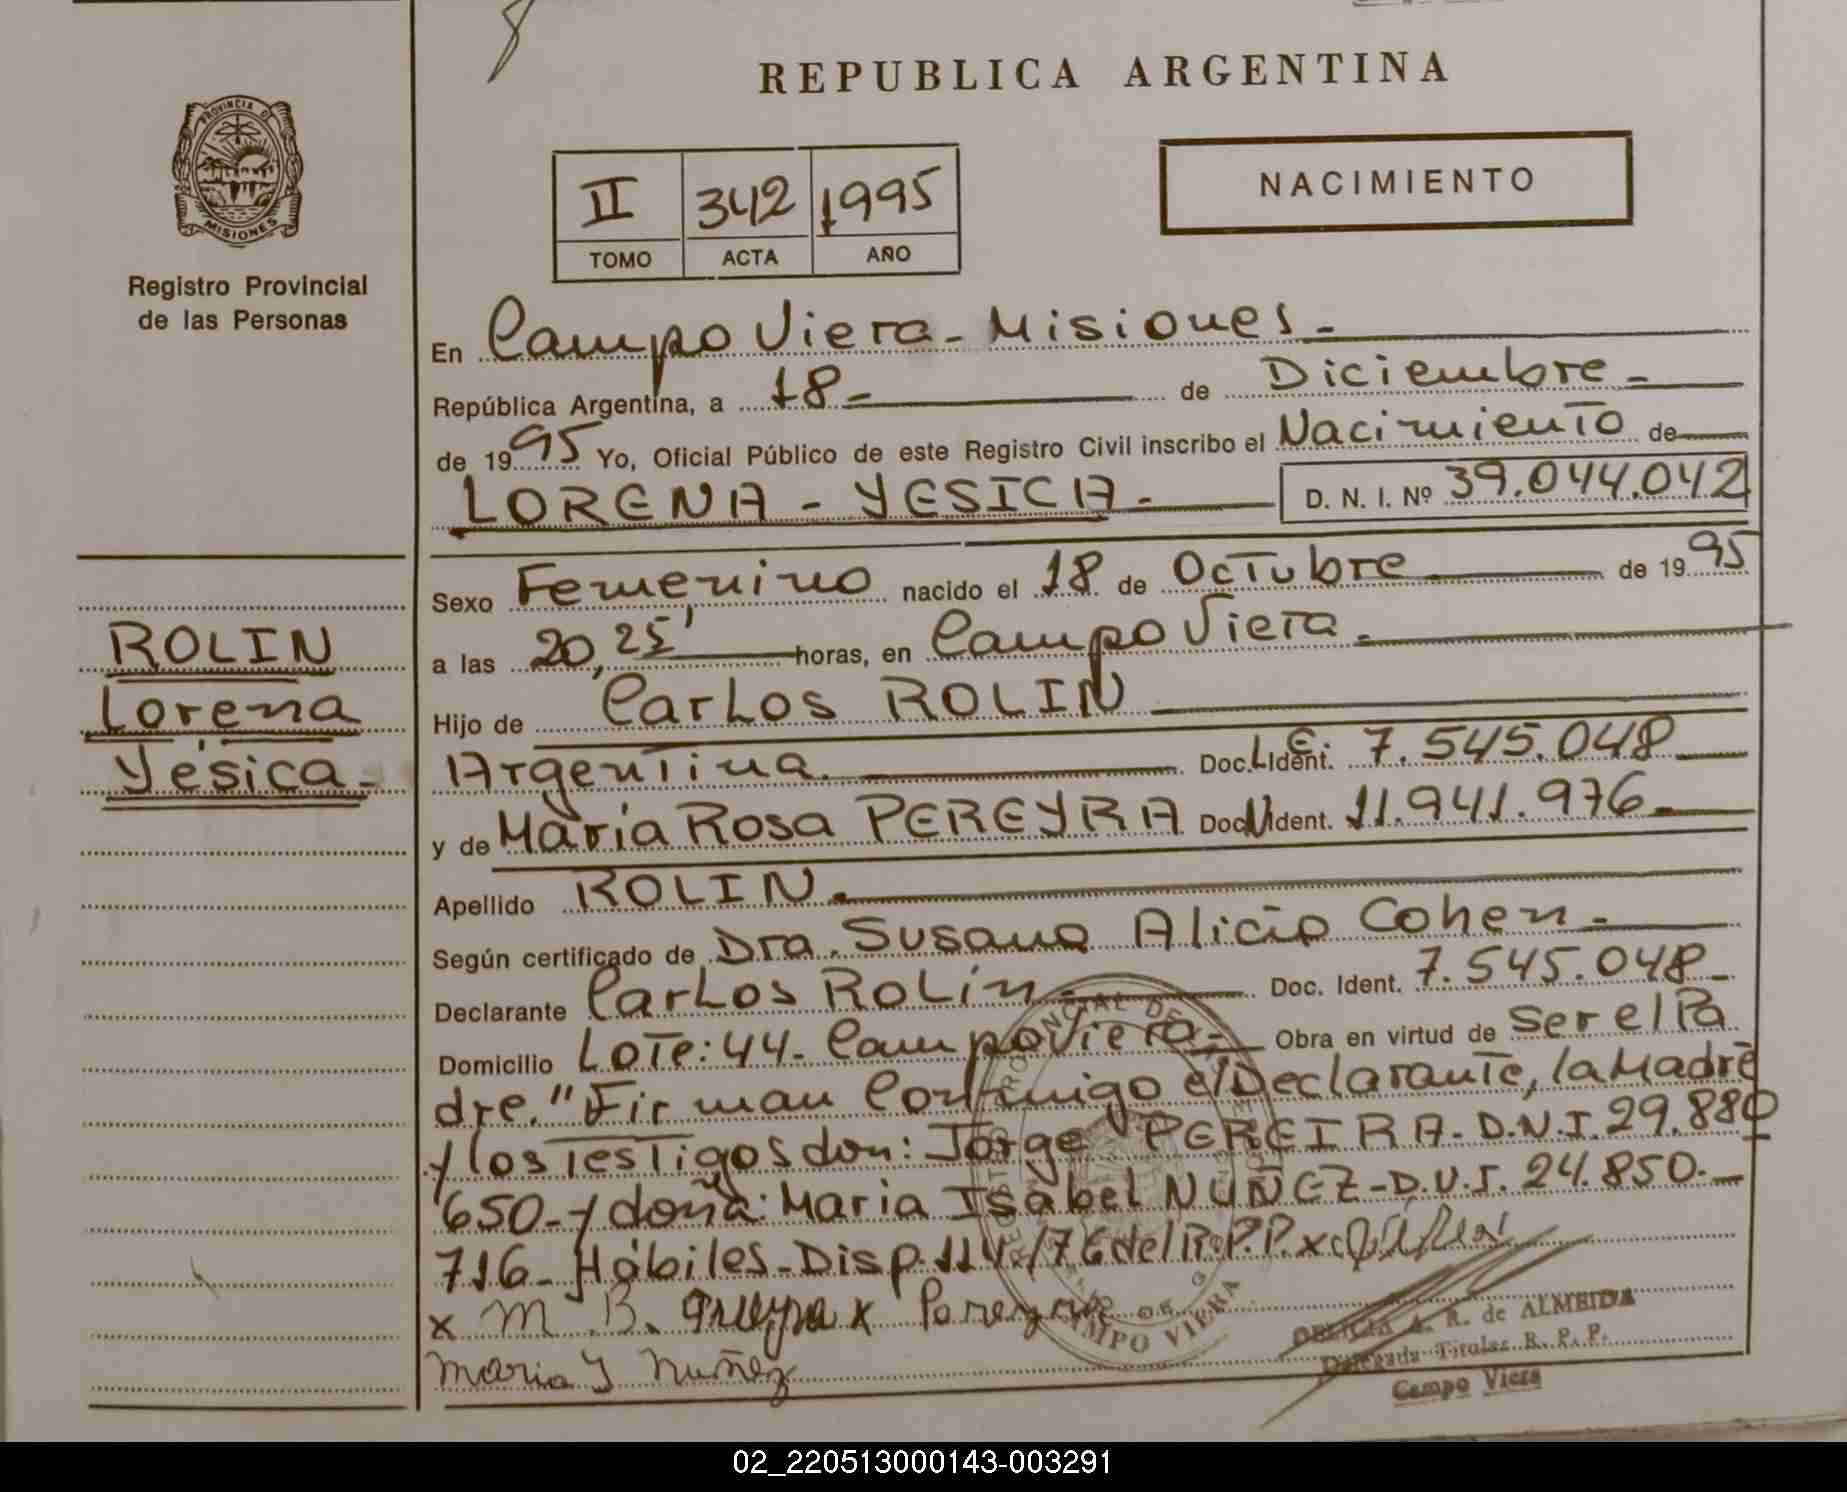 REPUBLICA ARGENTINA
PROVINCIA DE
MISIONES
Registro Provincial
de las Personas
II 342 1995
TOMO ACTA AÑO
NACIMIENTO
En Campo Viera - Misiones -
República Argentina, a 18 - de Diciembre -
de 1995 Yo, Oficial Público de este Registro Civil inscribo el Nacimiento de
LORENA - YESICA - D. N. I. Nº 39.044.042
Sexo Femenino nacido el 18 de Octubre de 1995
a las 20,25' horas, en Campo Viera -
Hijo de Carlos ROLIN
Argentina. Doc. L.E. Ident. 7.545.048
y de María Rosa PEREYRA Doc. Ident. 11.941.976 -
Apellido ROLIN.
Según certificado de Dra. Susana Alicia Cohen -
Declarante Carlos Rolín - Doc. Ident. 7.545.048 -
Domicilio Lote: 44 - Campo Viera - Obra en virtud de ser el Pa
dre." Firman Conmigo el Declarante, la Madre
y los Testigos don: Jorge PEREIRA - D.N.I. 29.880
650 - y doña: Maria Isabel NUÑEZ - D.N.I. 24.850. -
716 - Hábiles - Disp. 114/76 del R.P.P. x
x M B. x Pereyra
Maria I Nuñez
ROLIN
Lorena
Yésica -
CAMPO VIERA
A. R. de ALMEIDA
Delegada Titular R. P. P.
Campo Viera
02_220513000143-003291